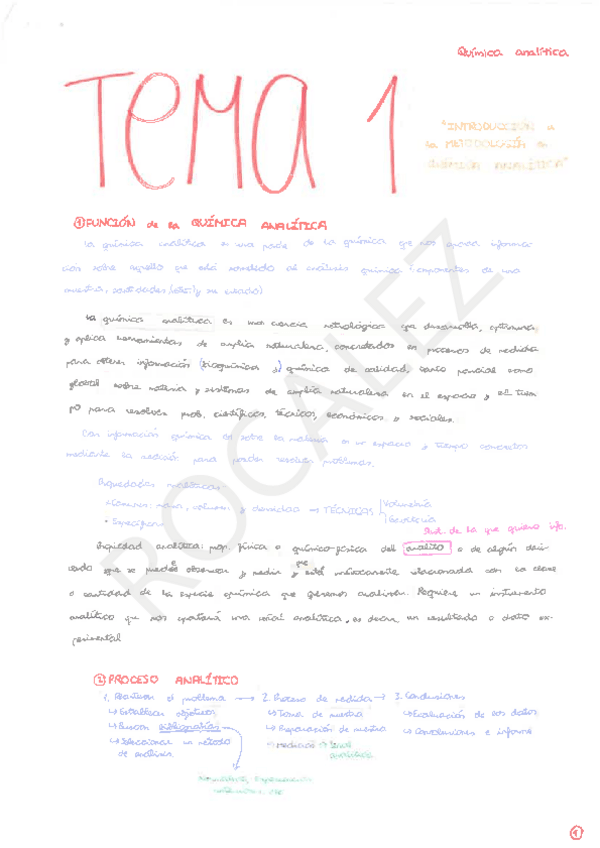 Química analítica
TEMA 1
"INTRODUCCIÓN a
la METODOLOGÍA en
QUÍMICA ANALÍTICA"
① FUNCIÓN de la QUÍMICA ANALÍTICA
La química analítica es una parte de la química que nos aporta informa
ción sobre aquello que está sometido al análisis químico (componentes de una
muestra, cantidades y su estado)
La química analítica es una ciencia metrológica que desarrolla, optimiza
y aplica herramientas de amplia naturaleza, concretadas en procesos de medida
para obtener información (bioquímica y) química de calidad, tanto parcial como
global sobre materia y sistemas de amplia naturaleza en el espacio y el tiem
po para resolver prob. científicos, técnicos, económicos y sociales.
Con información química sobre la materia en un espacio y tiempo concretos
mediante la medición para poder resolver problemas.
Propiedades analíticas:
• Comunes: masa, volumen y densidad → TÉCNICAS Volumetría
• Específicas
Sust. de la que quiero info.
Propiedad analítica: prop. física o químico-física del analito o de algún deri
vado que se puede observar y medir y que está unívocamente relacionada con la clase
o cantidad de la especie química que queremos analizar. Requiere un instrumento
analítico que nos aportará una señal analítica, es decir, un resultado o dato ex-
perimental
② PROCESO ANALÍTICO
1. Plantear el problema → 2. Proceso de medida → 3. Conclusiones
↳ Establecer objetivos ↳ Toma de muestra ↳ Evaluación de los datos
↳ Buscar bibliografía ↳ Preparación de muestra ↳ Conclusiones e informe
↳ Seleccionar un método ↳ Medición → Señal
de análisis. analítica
ROCALEZ
1